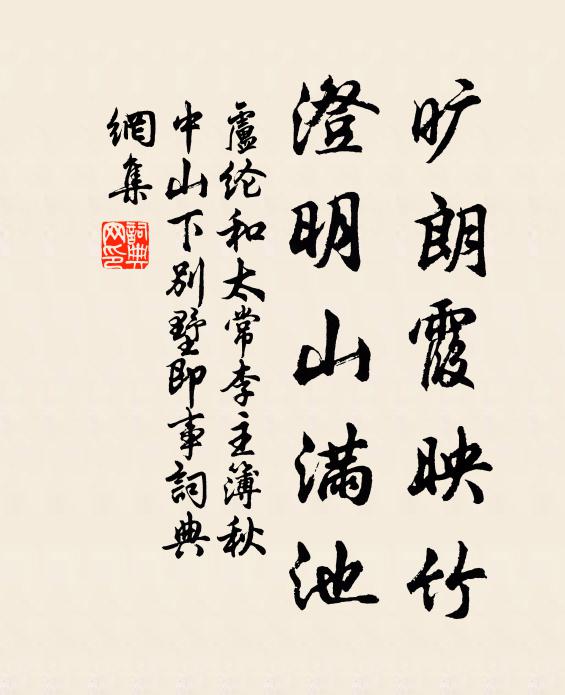 旷朗霞映竹
澄明山满池
盧纶和太常李主簿秋
中山下別墅即事詞典
網集
詞典
网印